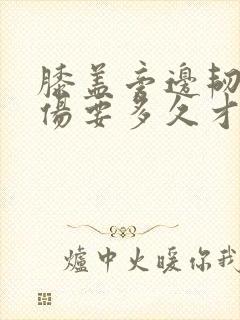 膝盖旁邊韌
傷要多久才
爐中火暖你我